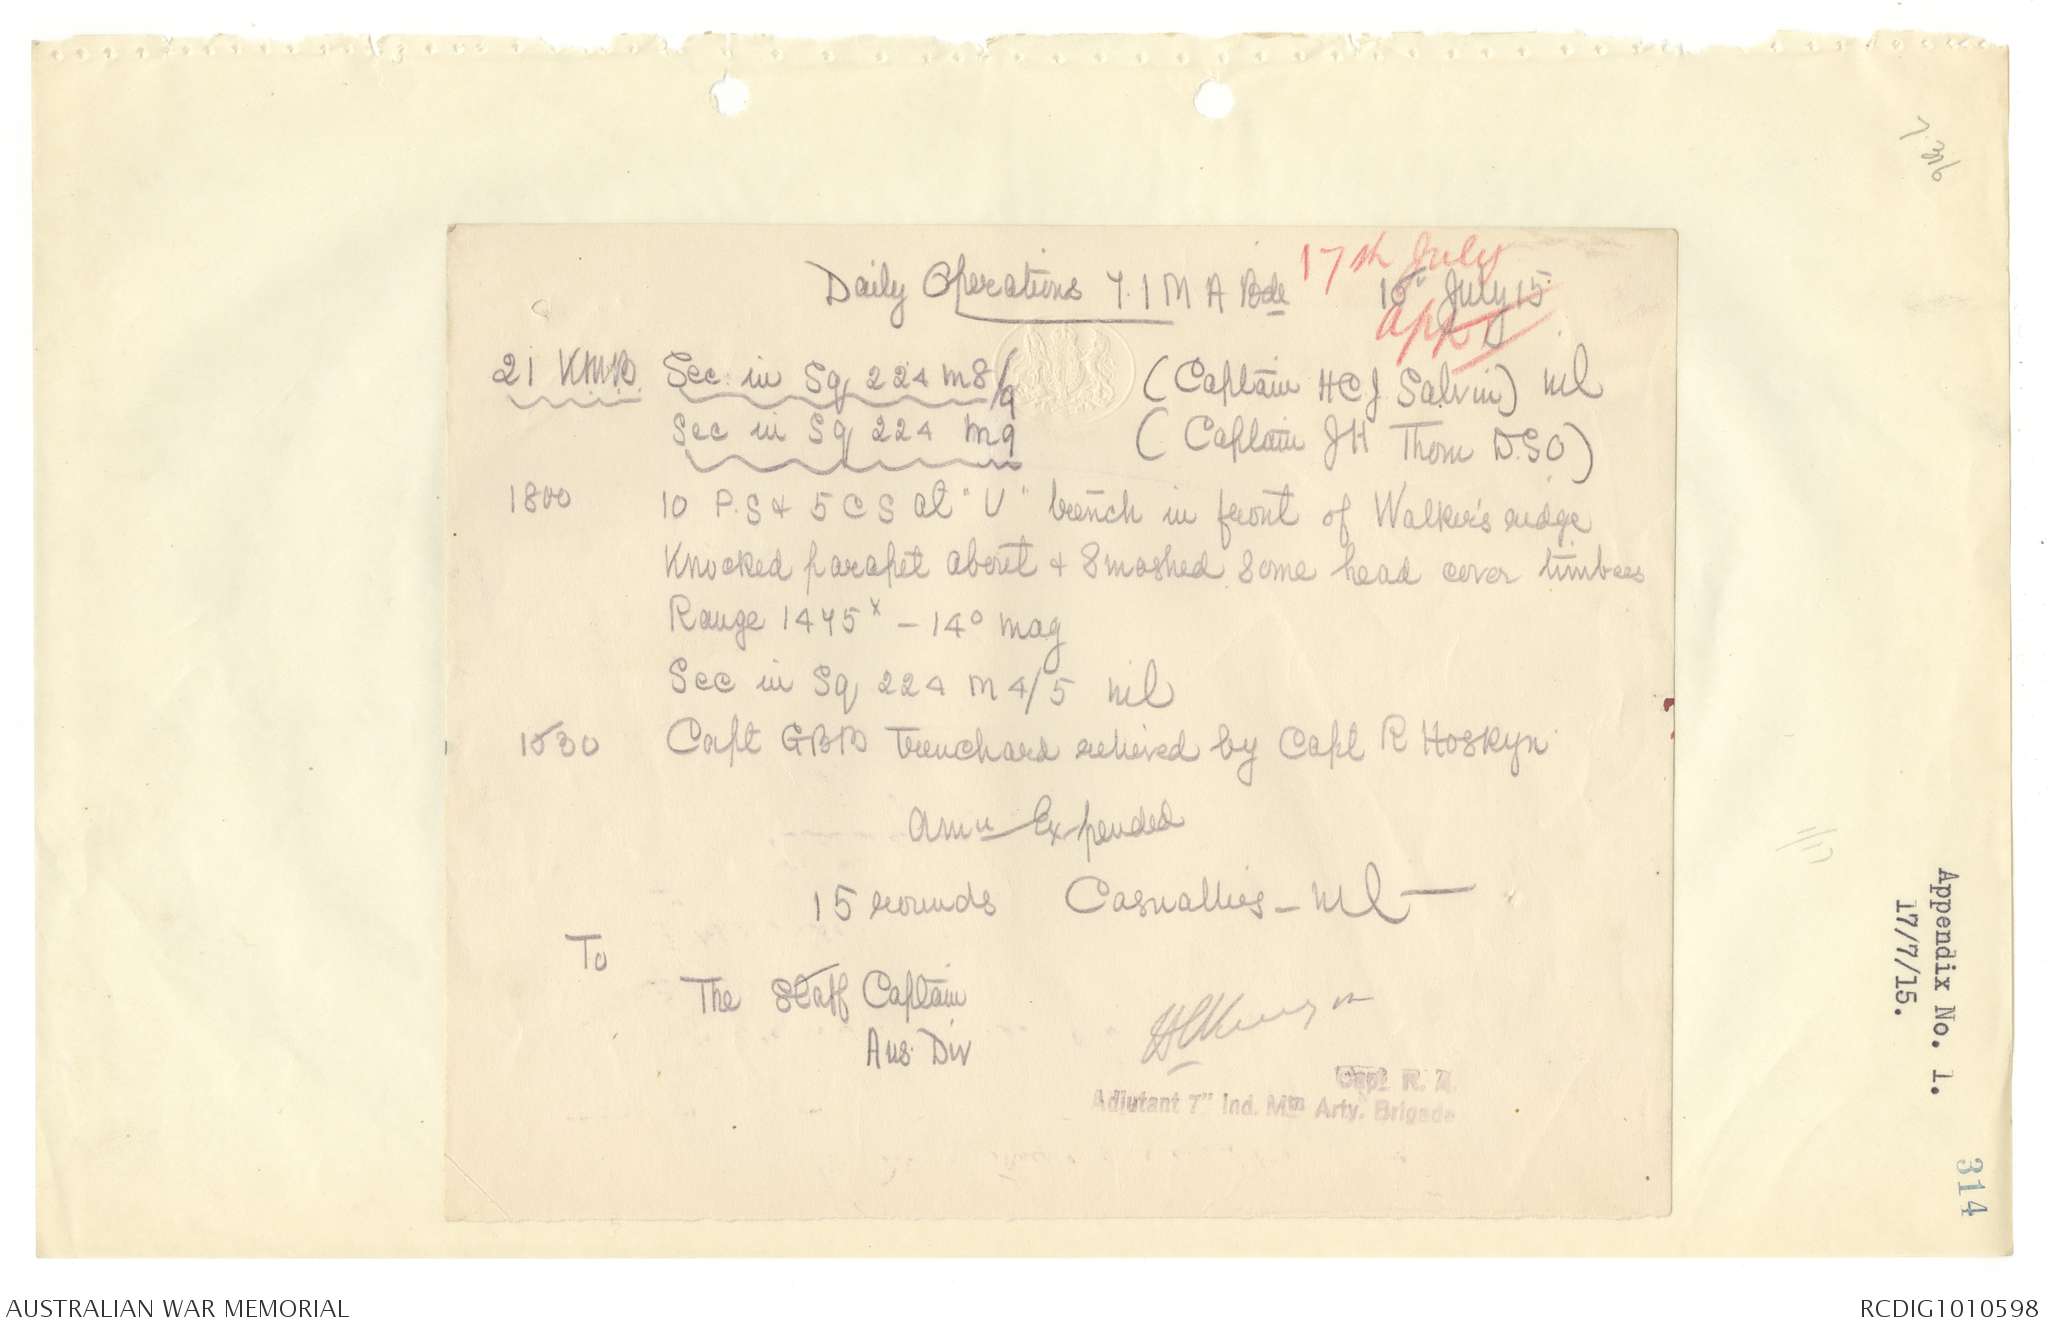 17th July
Daily Operations 7. I M A Bde 16th July 15
app 1
21 KMB. Sec in Sq 224 M8/9 (Captain HCJ Salvin) Nil
Sec in Sq 224 M9 (Captain JH Thom D.S.O)
1800 10 P.S & 5 C S at "U" trench in front of Walker's ridge
Knocked parapet about & smashed some head cover timbers
Range 1475ˣ - 14° mag
Sec in Sq 224 M 4/5 nil
1530 Capt GBB Trenchard relieved by Capt R Hoskyn
Amn Expended
15 rounds Casualties - Nil -
To
The Staff Captain
Aus. Div
Capt R. A.
Adjutant 7" Ind. Mtn Arty. Brigade
Appendix No. 1.
17/7/15.
314
AUSTRALIAN WAR MEMORIAL
RCDIG1010598